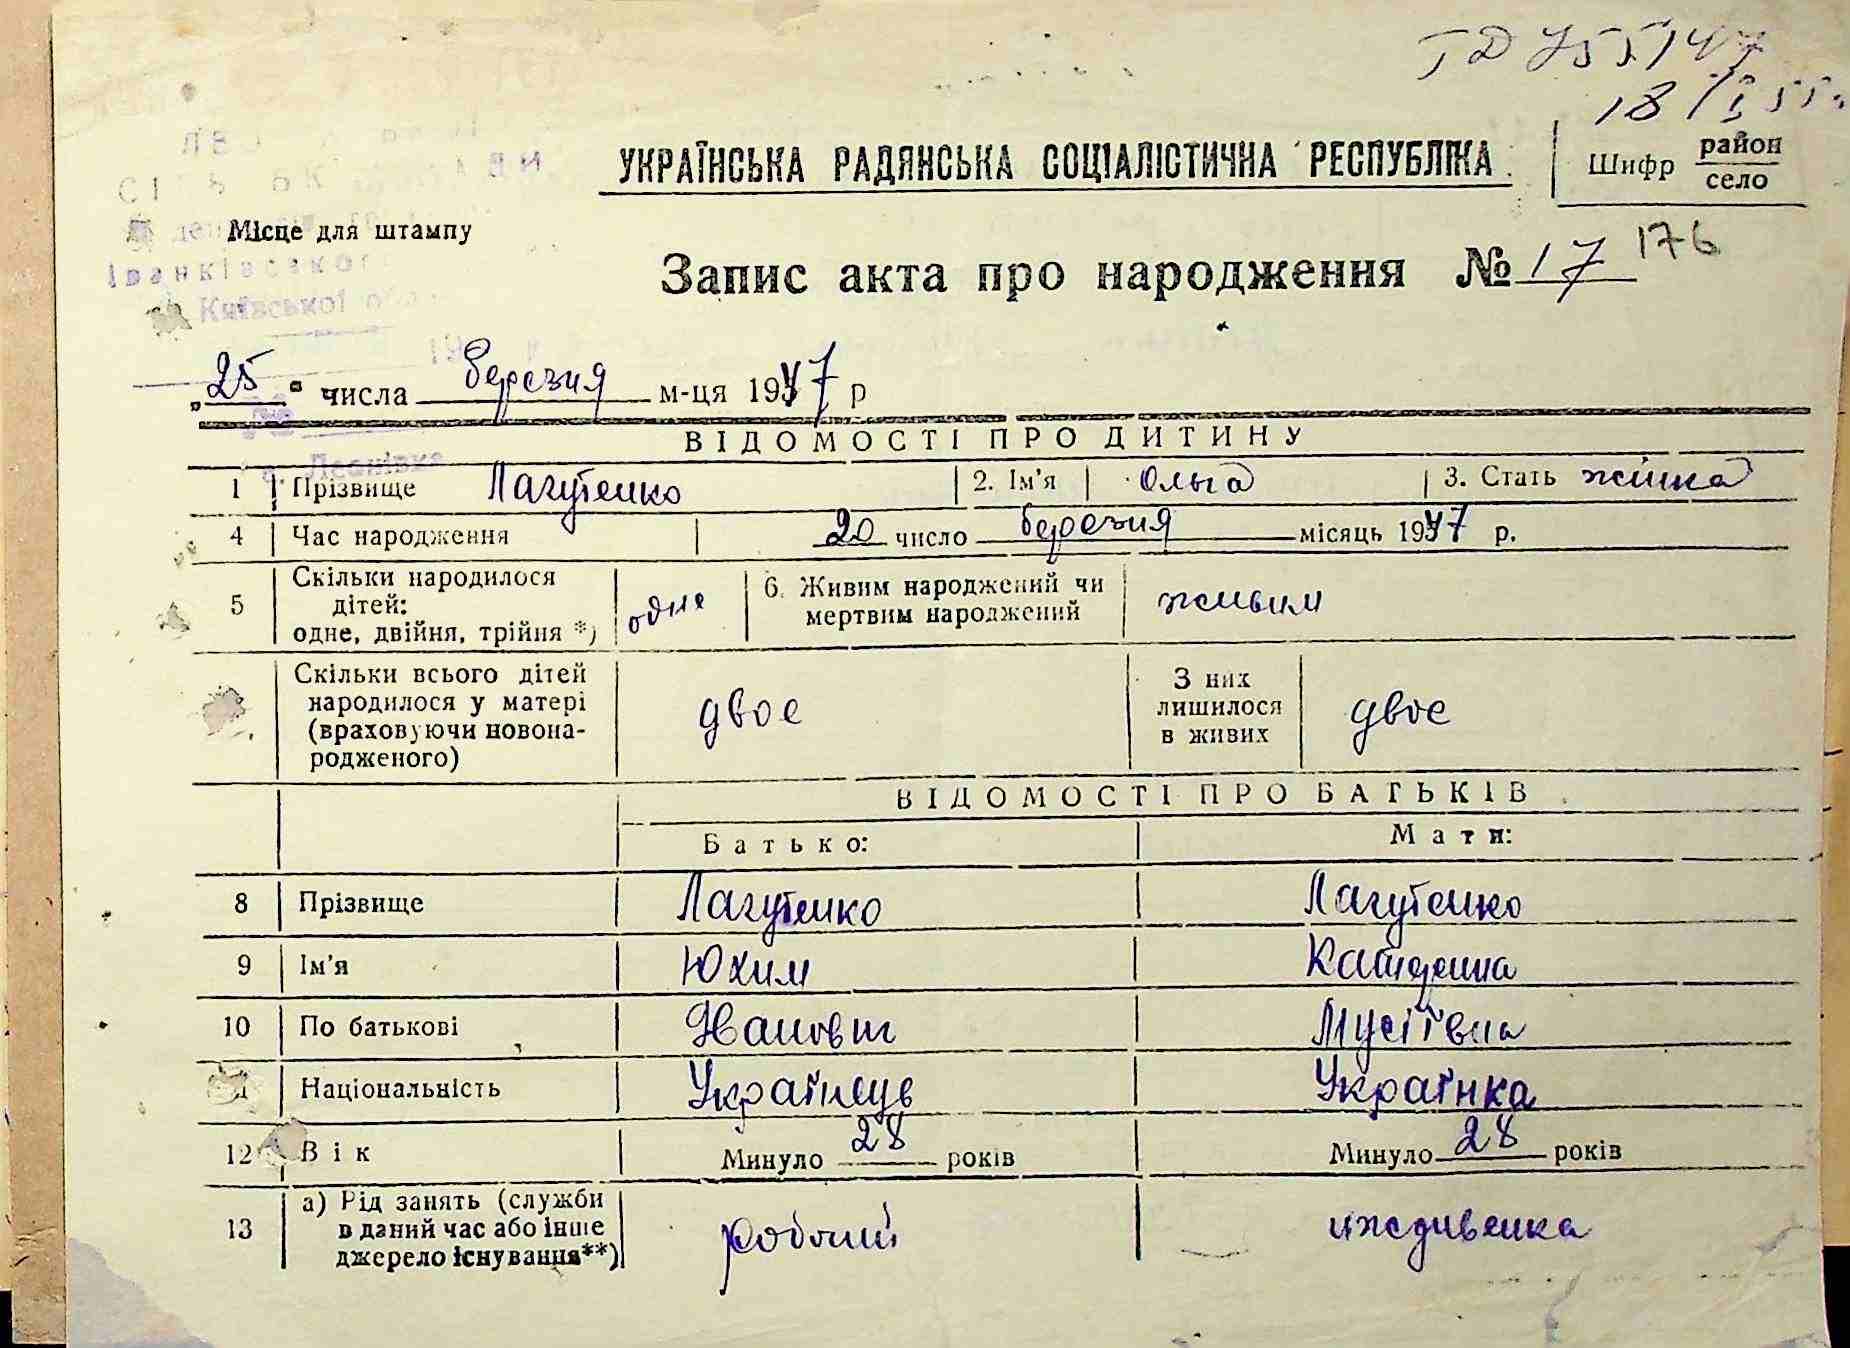 18/I 55.
УКРАЇНСЬКА РАДЯНСЬКА СОЦІАЛІСТИЧНА РЕСПУБЛІКА
Шифр район
село
Місце для штампу
Іванківського
Київської обл.
Запис акта про народження № 17 176
„25" числа березня м-ця 1947 р
ВІДОМОСТІ ПРО ДИТИНУ
с. Леонівка
1 Прізвище Лагутенко 2. Ім'я Ольга 3. Стать жінка
4 Час народження 20 число березня місяць 1947 р.
5 Скільки народилося дітей: одне, двійня, трійня *) одне 6. Живим народжений чи мертвим народжений живым
Скільки всього дітей народилося у матері (враховуючи новона-родженого) двоє З них лишилося в живих двоє
ВІДОМОСТІ ПРО БАТЬКІВ
Батько: Мати:
8 Прізвище Лагутенко Лагутенко
9 Ім'я Юхим
10 По батькові Мусіївна
11 Національність Українець Українка
12 Вік Минуло 28 років Минуло 28 років
13 а) Рід занять (служби в даний час або інше джерело існування**) робочий иждивенка